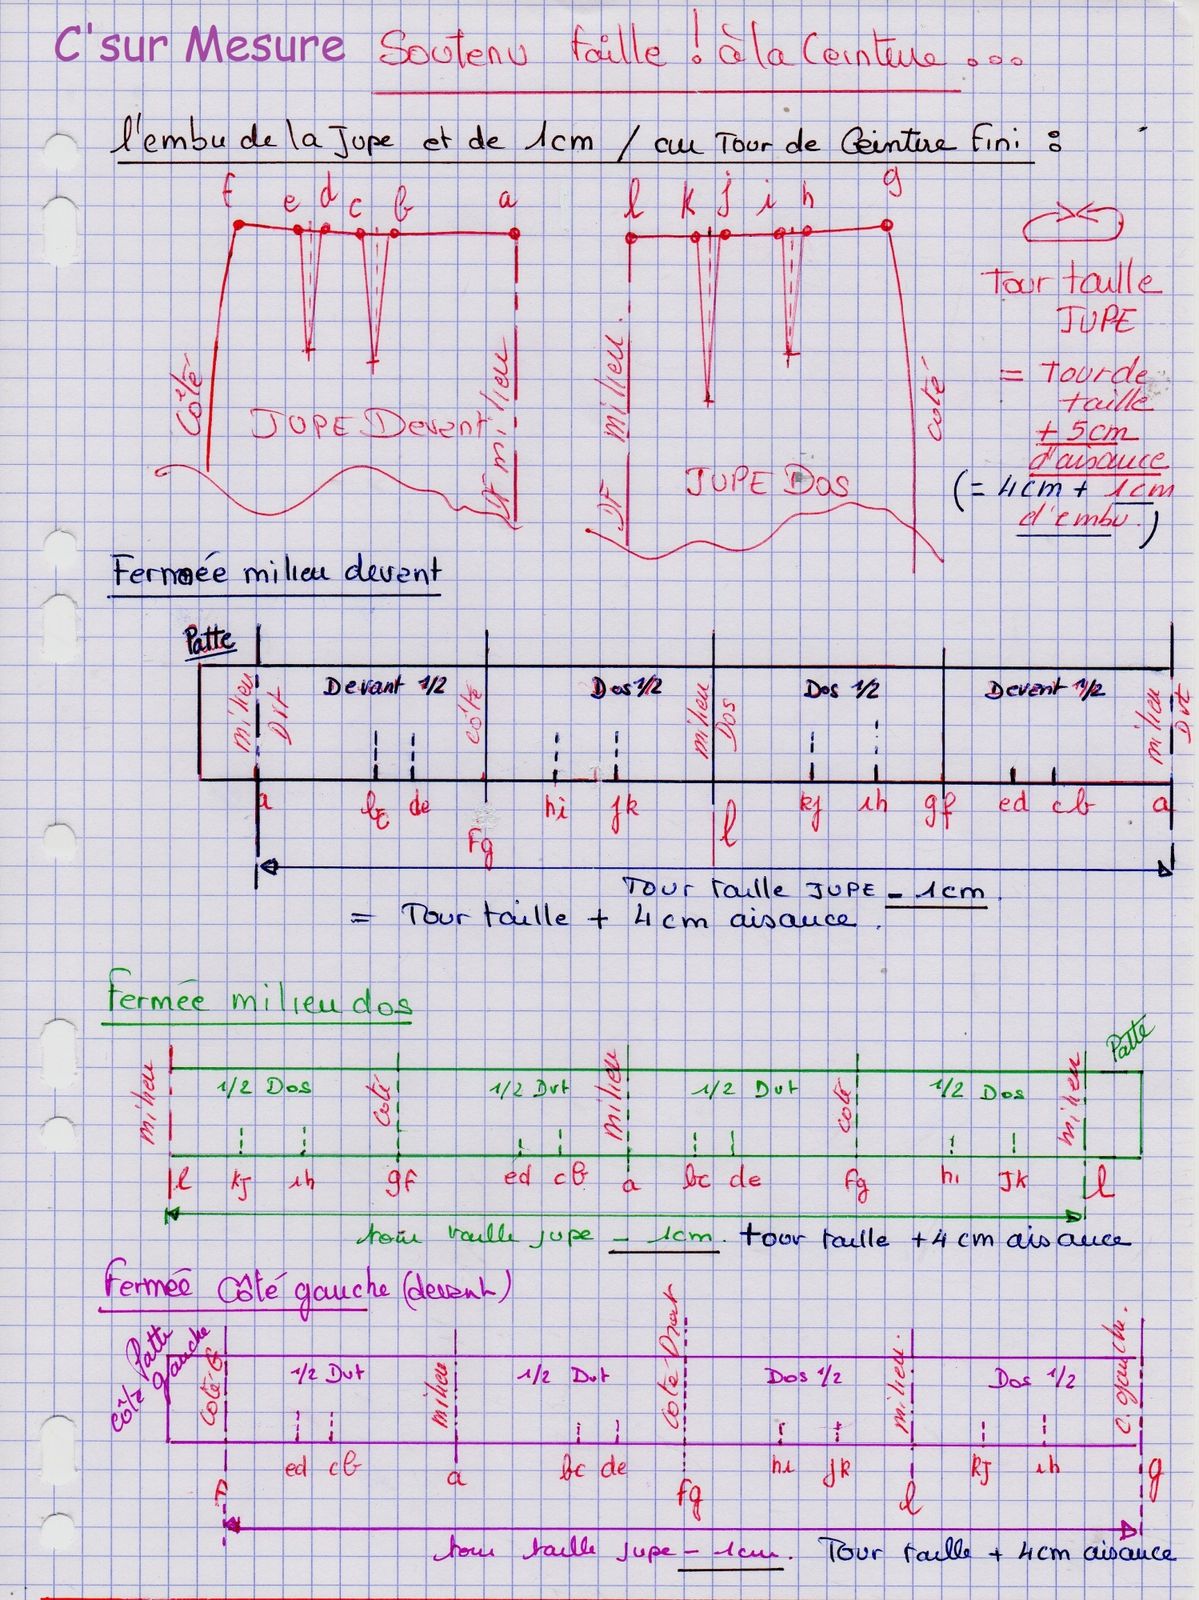 C'sur Mesure Soutenu taille ! à la Ceinture ...
l'embu de la Jupe et de 1cm / au Tour de Ceinture Fini :
f e d c b a
l k j i h g
Tour taille
JUPE
= Tour de
taille
+ 5cm
d'aisance
(= 4cm + 1cm
d'embu.)
Côté
JUPE Devent
DF milieu
DF milieu
JUPE Dos
côté
Fermée milieu devent
Patte
milieu Dvt
Devant 1/2
côté
Dos 1/2
milieu Dos
Dos 1/2
Devent 1/2
milieu Dvt
a bc de Fg hi jk l kj ih gf ed cb a
Tour taille JUPE - 1cm.
= Tour taille + 4cm aisance.
Fermée milieu dos
Patte
milieu
1/2 Dos
coté
1/2 Dvt
milieu
1/2 Dvt
coté
1/2 Dos
milieu
l kj ih gf ed cb a bc de fg hi Jk l
tour taille jupe - 1cm. tour taille + 4cm aisance
Fermée Côté gauche (devent)
Patte
côté gauche
coté G
1/2 Dvt
milieu
1/2 Dvt
coté Droit
Dos 1/2
milieu.
Dos 1/2
c. gauche.
ed cb a bc de fg hi jk l kJ ih g
tour taille jupe - 1cm. Tour taille + 4cm aisance